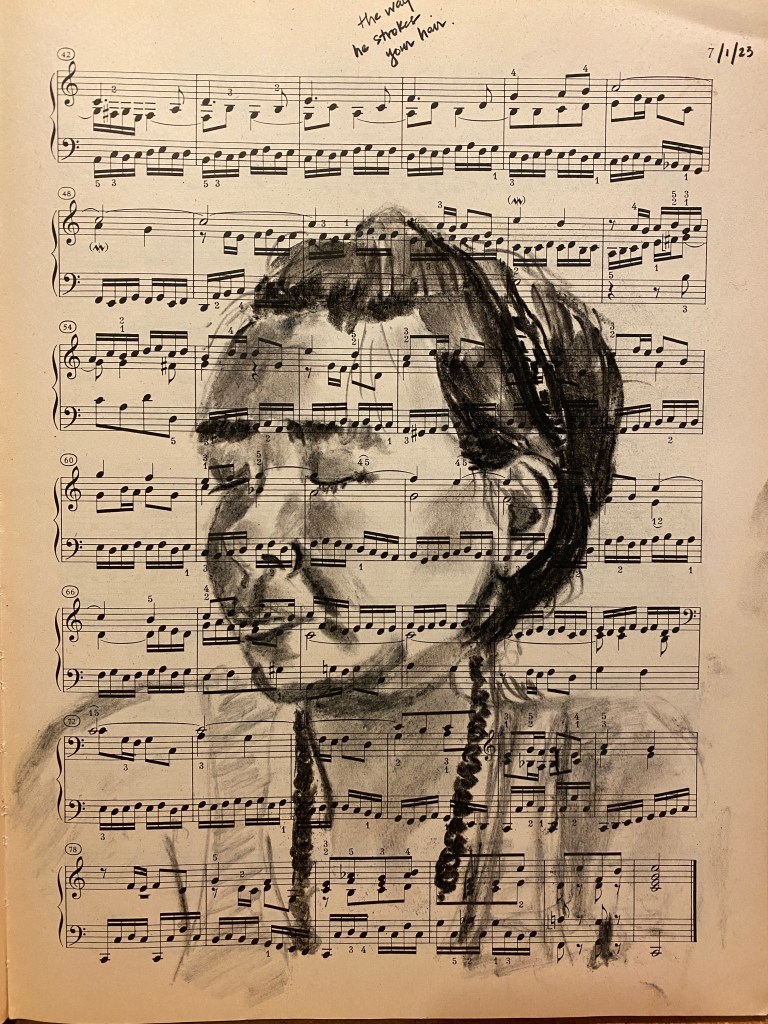 the way
he strokes
your hair.
7/1/23
42
48
54
60
66
72
78